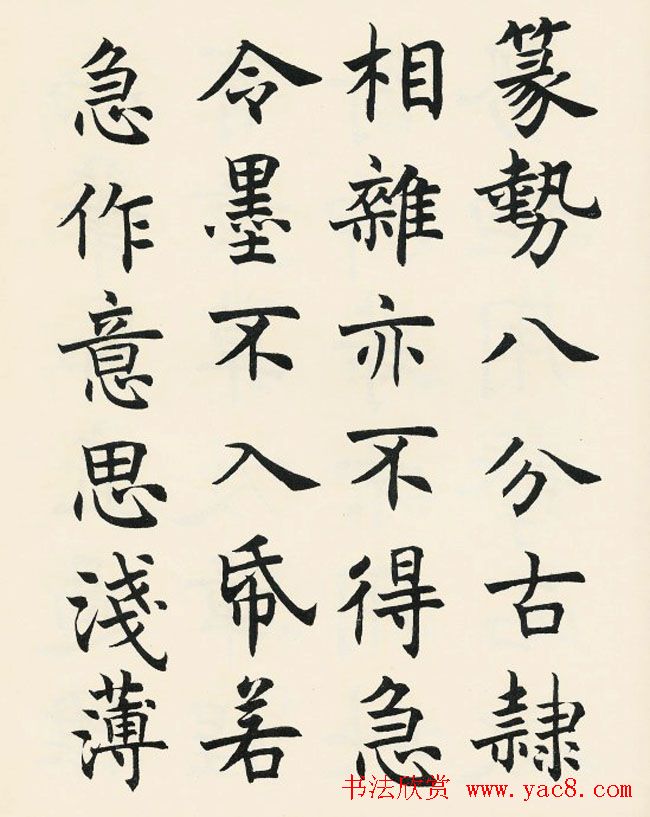 篆勢八分古隷
相雜亦不得急
令墨不入帋若
急作意思淺薄
书法欣赏 www.yac8.com